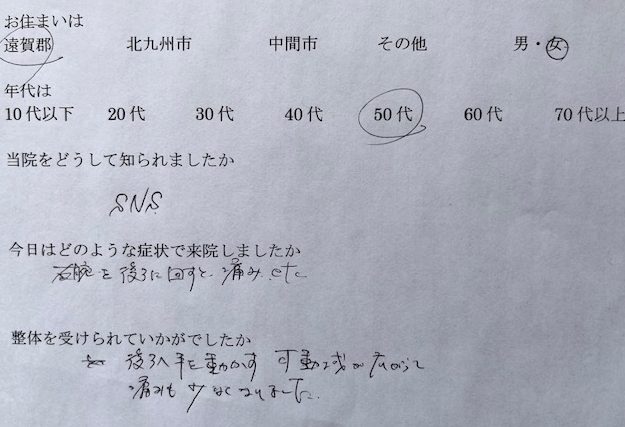 お住まいは
遠賀郡 北九州市 中間市 その他 男・女
年代は
10代以下 20代 30代 40代 50代 60代 70代以上
当院をどうして知られましたか
SNS
今日はどのような症状で来院しましたか
右腕を後ろに回すと痛み etc
整体を受けられていかがでしたか
後ろへ手を動かす可動域が広がって
痛みも少なくなりました.